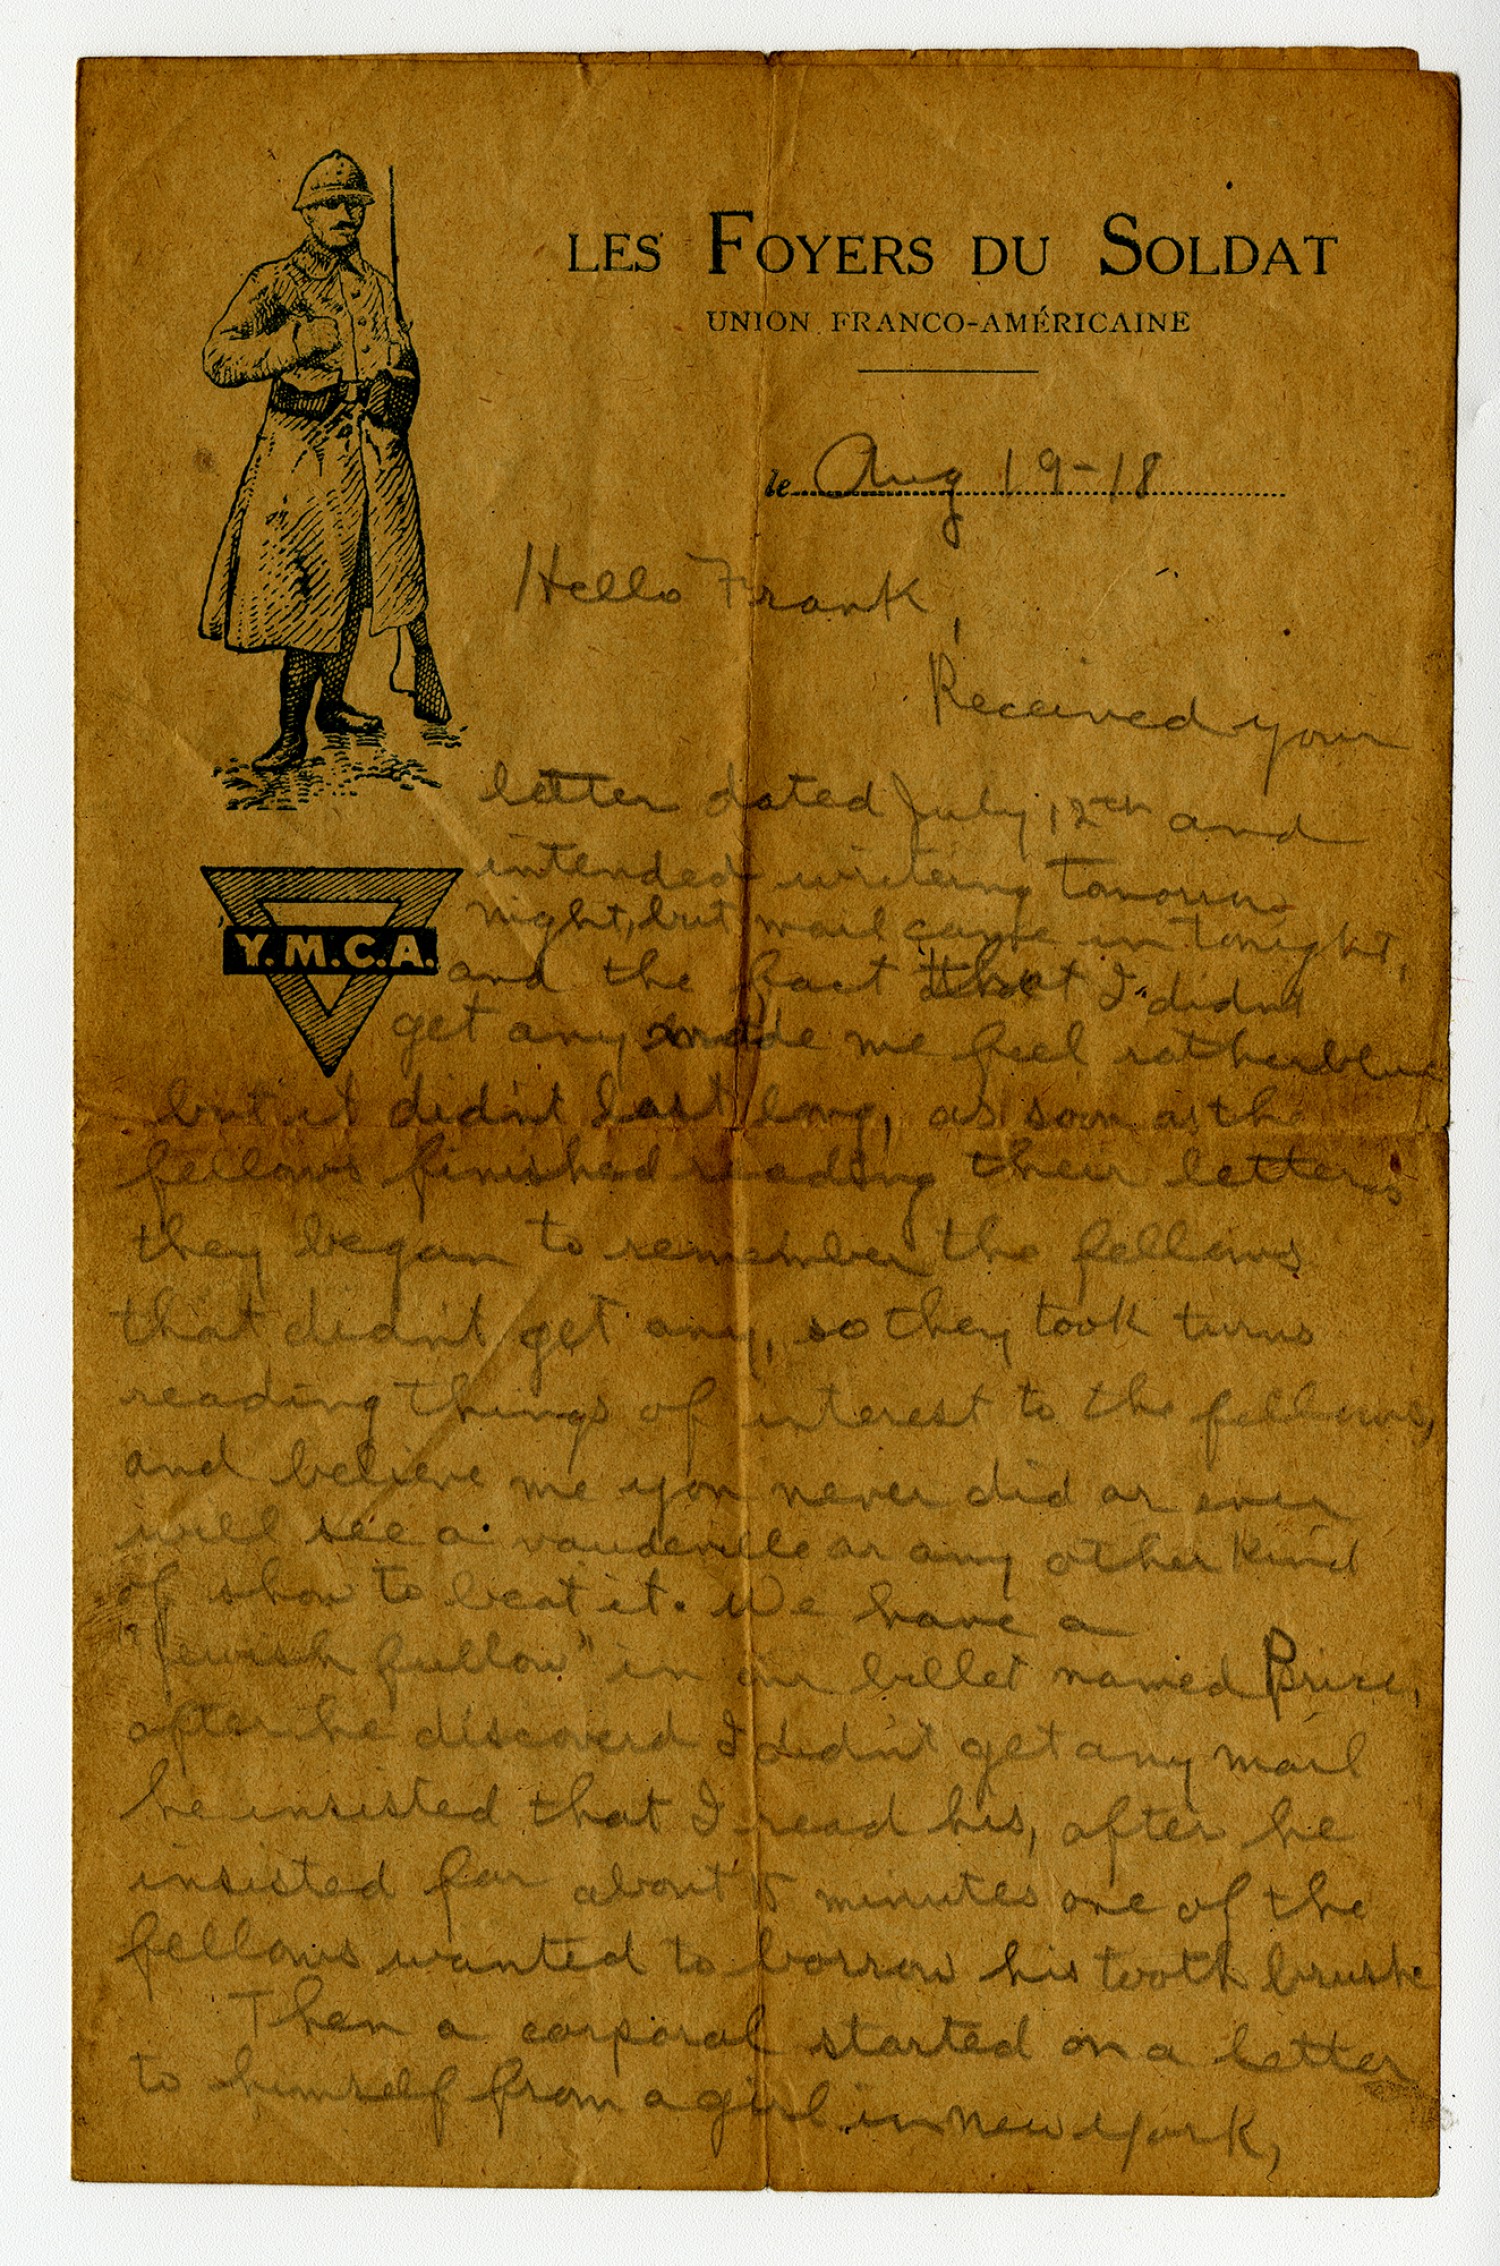 LES FOYERS DU SOLDAT
UNION FRANCO-AMÉRICAINE
le Aug 19-18
Hello Frank,
Received your
letter dated July 12th and
intended writeing tomorrow
night, but mail came in tonight,
Y.M.C.A.
and the fact that I didnt
get any made me feel rather blue
but it didn't last long, as soon as the
fellows finished reading their letters
they began to remember the fellows
that didn't get any, so they took turns
reading things of interest to the fellows,
and believe me you never did or ever
will see a vaudeville or any other kind
of show to beat it. We have a
"Jewish fullow" in our billet named
after he discoverd I didn't get any mail
he insisted that I read his, after he
insisted for about 15 minutes one of the
fellows wanted to borrow his tooth brush
Then a corporal started on a letter
to himself from a girl in New York,